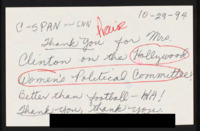 C-SPAN - CNN Praise 10-29-94
Thank You for Mrs.
Clinton on the Hollywood
Women's Political Committee
Better than football - HA!
Thank you, thank you.